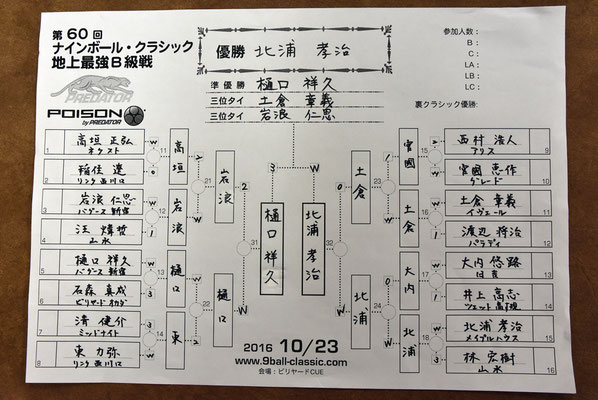 第60回
ナインボール・クラシック
地上最強B級戦
優勝 北浦 孝治
準優勝 樋口 祥久
三位タイ 土倉 章義
三位タイ 岩浪 仁思
参加人数：
B：
C：
LA：
LB：
LC：
裏クラシック優勝：
PREDATOR
POISON
by PREDATOR
1 高垣 正弘
ネクスト
2 稲佳 遼
リンク 西川口
3 岩浪 仁思
バグース 新宿
4 汪 煒哲
山水
5 樋口 祥久
バグース 新宿
6 石森 真成
ビリヤード オカダ
7 清 健介
ミッドナイト
8 東 力弥
リンク 西川口
高垣
岩浪
樋口
東
岩浪
樋口
樋口 祥久
北浦 孝治
土倉
北浦
官國
土倉
大内
北浦
西村 浩人 9
アリス
官國 恵作 10
グレード
土倉 章義 11
イヴェール
渡辺 将治 12
パラディ
大内 悠路 13
井上 高志 14
北浦 孝治 15
メイプルハウス
林 宏樹 16
山水
2016 10/23
www.9ball-classic.com
会場：ビリヤードCUE